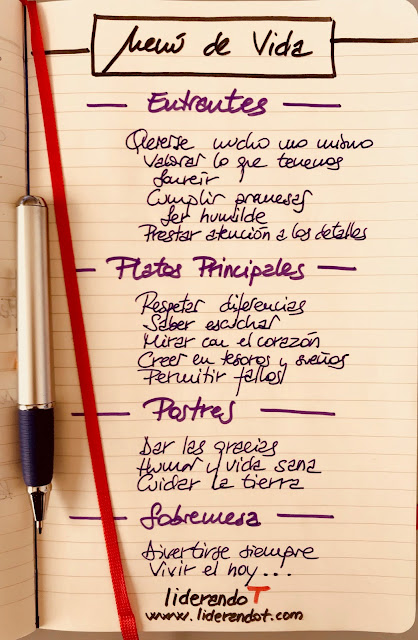 Menú de Vida
Entrantes
Quererse mucho uno mismo
Valorar lo que tenemos
Sonreír
Cumplir promesas
Ser humilde
Prestar atención a los detalles
Platos Principales
Respetar diferencias
Saber escuchar
Mirar con el corazón
Creer en tesoros y sueños
Permitir fallos
Postres
Dar las gracias
Humor y vida sana
Cuidar la tierra
Sobremesa
Divertirse siempre
Vivir el hoy...
liderandoT
www.liderandot.com